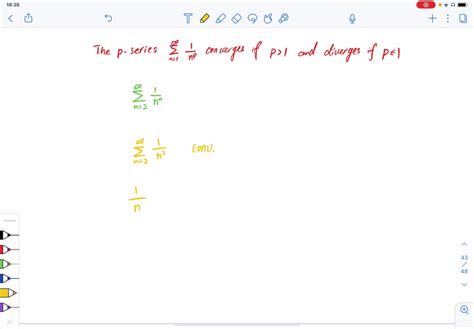 18:36
The p-series ∑_{n=1}^{∞} 1/n^p converges if p>1 and diverges if p≤1
∑_{n=2}^{∞} 1/n^n
∑_{n=2}^{∞} 1/n^2 conv.
1/n
43
/
48